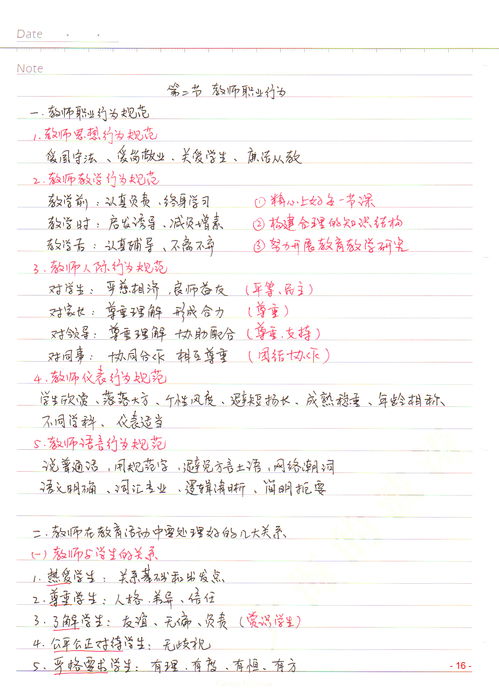 Date
Note
第二节 教师职业行为
一.教师职业行为规范
1.教师思想行为规范
爱国守法、爱岗敬业、关爱学生、廉洁从教
2.教师教学行为规范
教学前:认真负责、终身学习 ①精心上好每一节课
教学时:启发诱导、减负增素 ②构建合理的知识结构
教学后:认真辅导、不离不弃 ③努力开展教育教学研究
3.教师人际行为规范
对学生:严慈相济,良师益友(平等、民主)
对家长:尊重理解 形成合力(尊重)
对领导:尊重理解 协助配合(尊重、支持)
对同事:协同合作 相互尊重(团结协作)
4.教师仪表行为规范
学生欣赏、落落大方、个性风度、避短扬长、成熟稳重、年龄相称、
不同学科、仪表适当
5.教师语言行为规范
说普通话,用规范字,避免方言土语,网络潮词
语义明确、词汇专业、逻辑清晰、简明扼要
二.教师在教育活动中要处理好的几大关系
(一)教师与学生的关系
1.热爱学生:关系基础和出发点
2.尊重学生:人格、差异、信任
3.了解学生:友谊、无偏、负责(赏识学生)
4.公平公正对待学生:无歧视
5.严格要求学生:有理,有度,有恒,有方
- 16 -